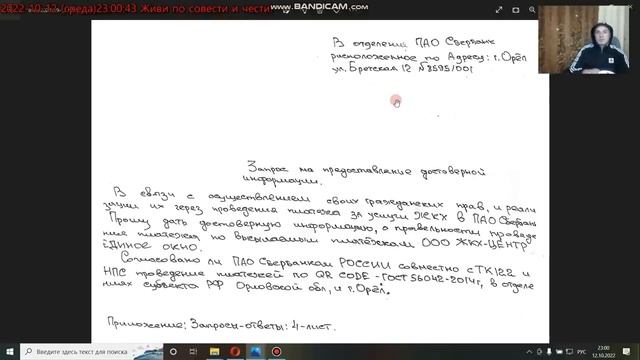 2022-10-12 (среда) 23:00:43 Живи по совести и чести
www.BANDICAM.com
В отделение ПАО Сбербанк
рисположенное по Адресу: г. Орёл
ул. Бретская 12 №8595/001
Запрос на предоставление достоверной
информации.
В связи с осуществлением своих гражданских прав, и реали
зации их через проведения платежа за услуги ЖКХ в ПАО Сбербанк
Прошу дать достоверную информацию, о правельности проведе
ния платежа по высылаемым платёжкам ООО ЖКХ-ЦЕНТР
ЕДИНОЕ ОКНО.
Согласовано ли ПАО Сбербанком РОССИИ совместно с ТК122 и
НПС проведение платежей по QR CODE - ГОСТ 56042-2014г, в отделе
ниях субъекта РФ Орловской обл, и г. Орёл.
Приложение: Запросы-ответы: 4-лист.
Введите здесь текст для поиска
РУС
23:00
12.10.2022